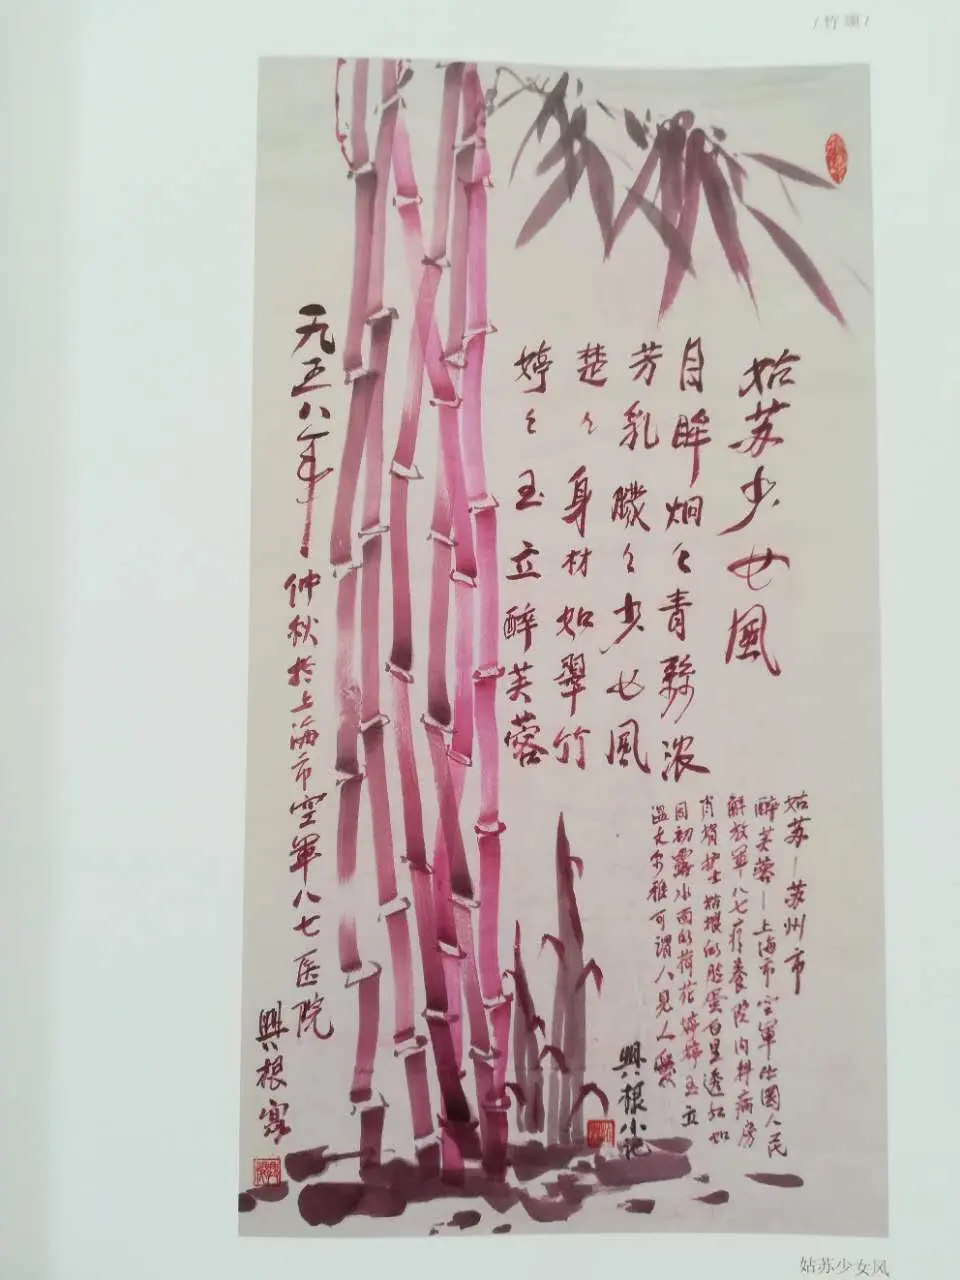 /竹 頌/
姑苏少女风
目眸炯々青黟浓
芳乳臙々少女风
楚々身材如翠竹
婷々玉立醉芙蓉
姑苏—苏州市
醉芙蓉—上海市空軍中國人民
解放軍八七疗養院内科病房
肖揹护士姑娘的脸蛋白里透红如
同初露水面的荷花婷婷玉立
温文尔雅可谓人見人愛
興根小记
一九五八年
仲秋於上海市空軍八七医院
興根寫
姑苏少女风